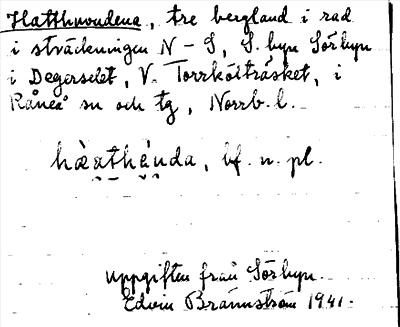 Hatthuvudena, tre bergland i rad
i sträckningen N-S, S. byn Sörbyn
i Degerselet, V. Torrkölträsket, i
Råneå sn och tg, Norrb. l.
hàathə̀nda, bf. n. pl.
uppgiften från Sörbyn.
Edvin Brännström 1941.